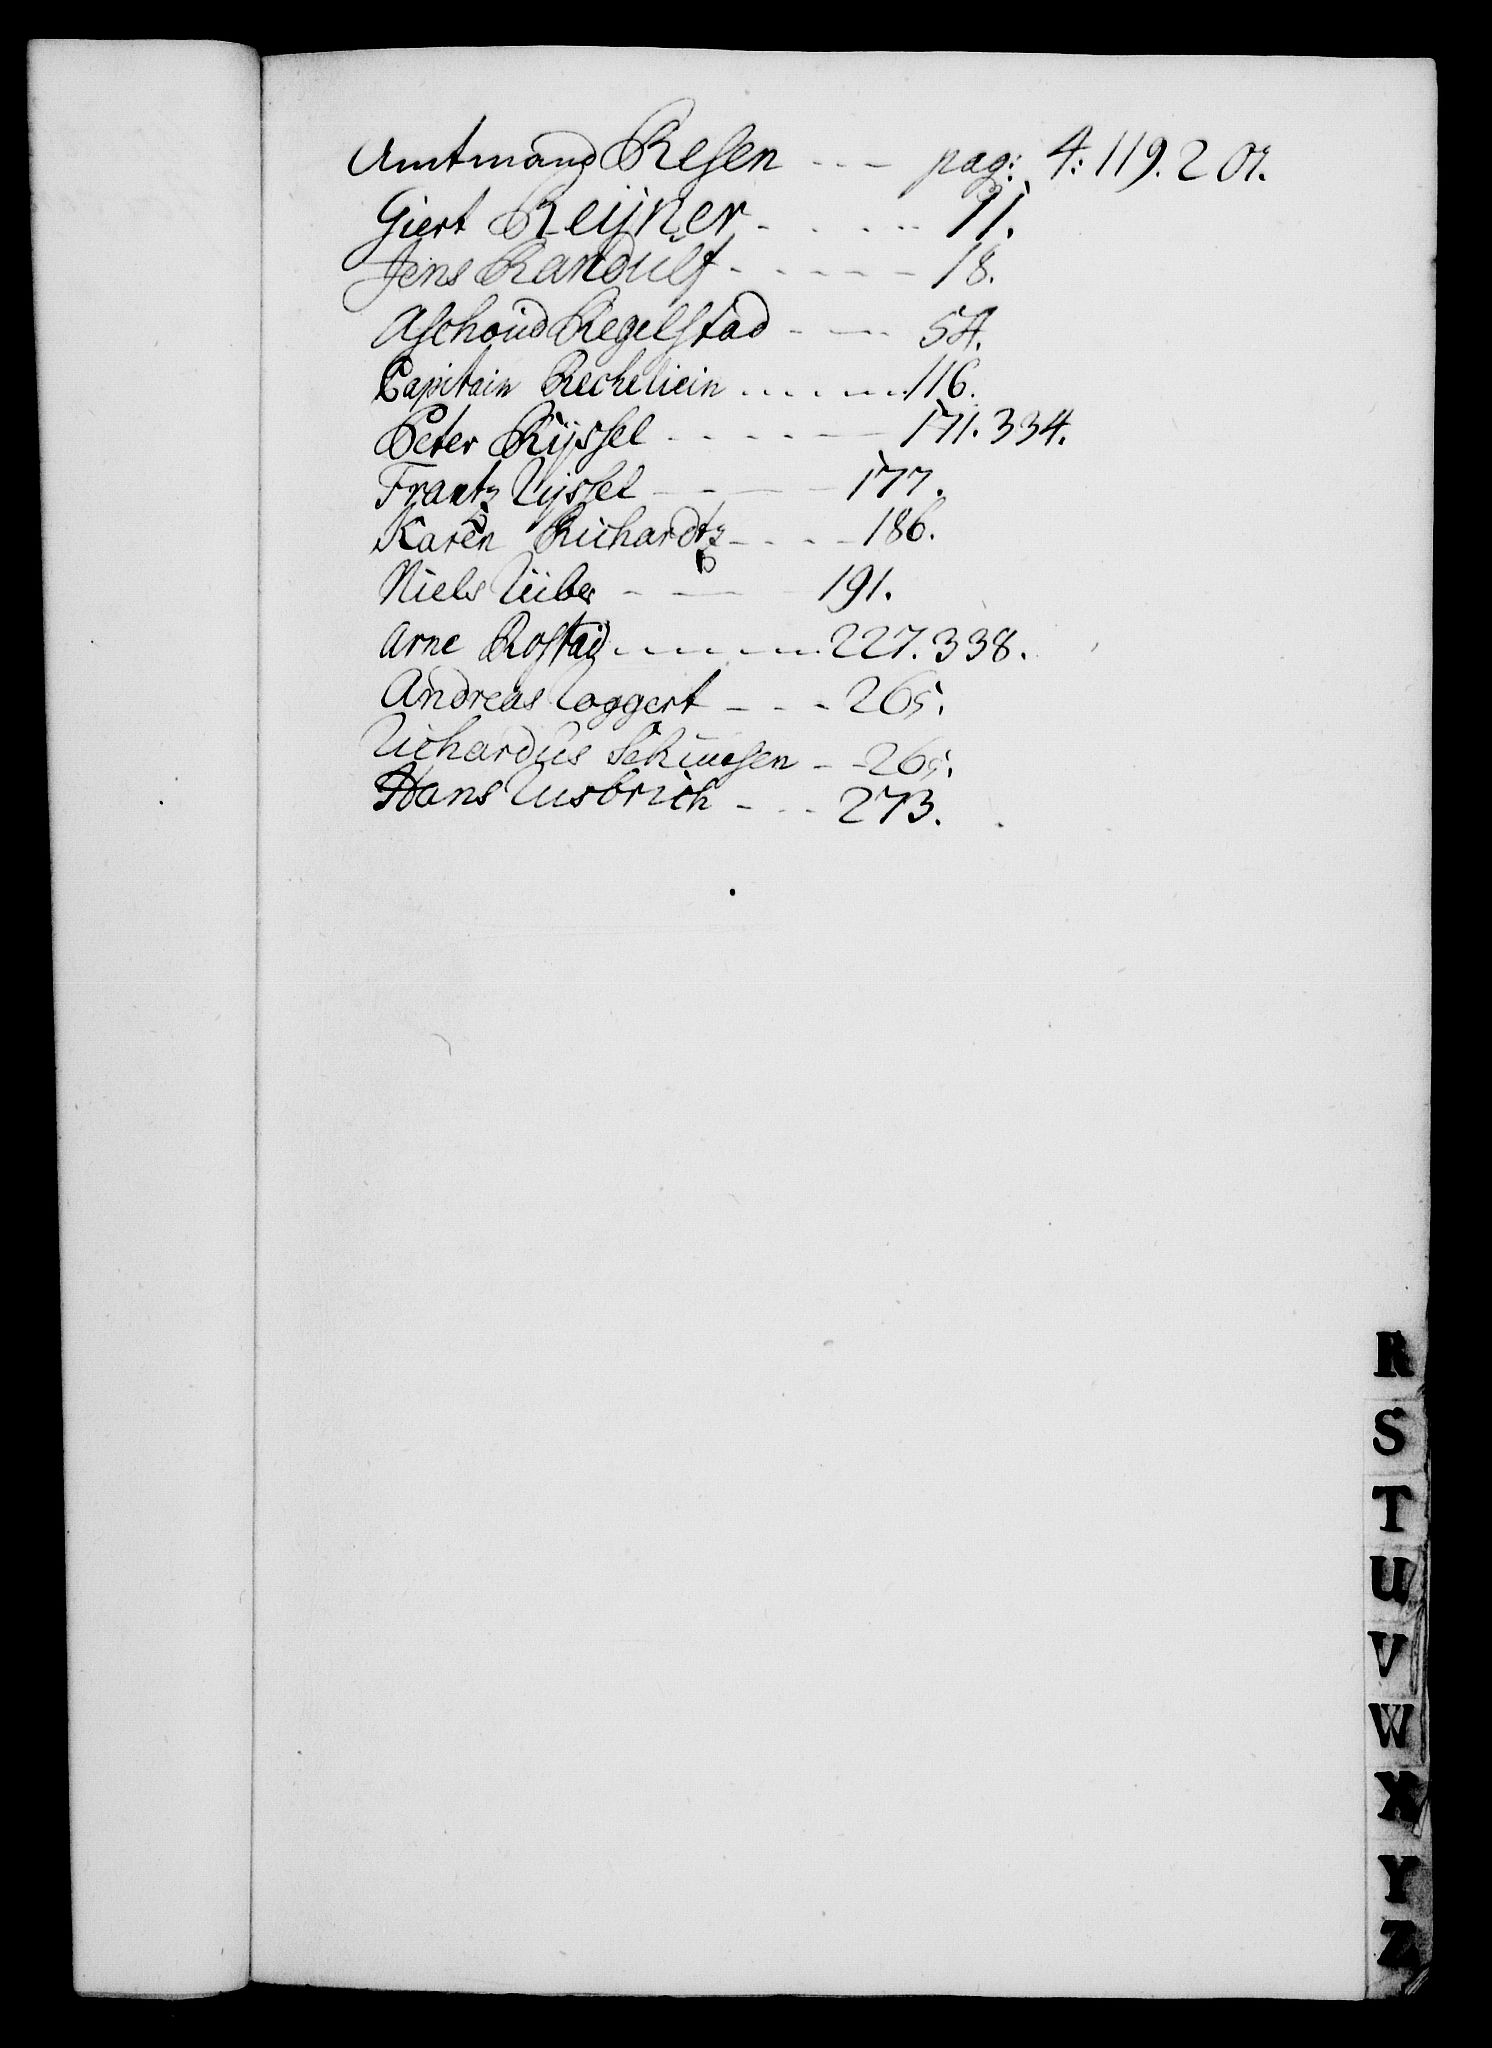 Amtmand Resen - - - pag: 4: 119. 207.
Giert Reijner - - - - - 11.
Jens Randulf - - - - - - 18.
Ashoud Regelstad - - - - 54.
Capitain Recheliein - - - - - - 116.
Peter Rijssel - - - - - 171. 334.
Frantz Rijssel - - - - 177.
Karen Richardtz - - - - 186.
Niels Riiber - - - - 191.
Arne Rostad - - - - - - 227. 338.
Andreas Roggert - - - 265.
Richardus - - 265.
Hans Rusbrich - - - 273.
R
S
T
U
V
W
X
Y
Z